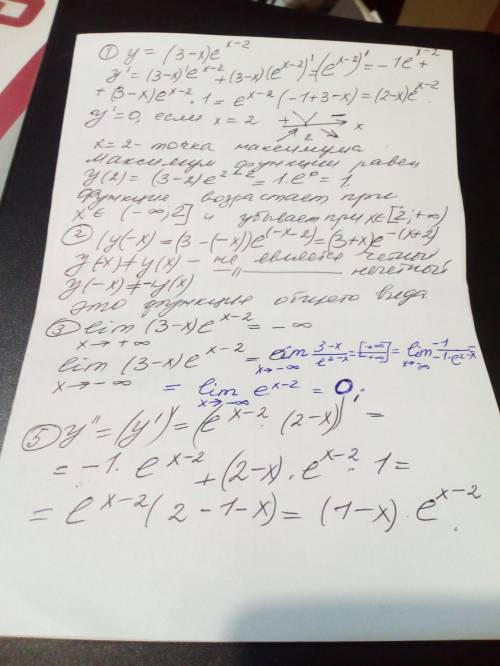 ① y = (3-x)e^{x-2}
y' = (3-x)'e^{x-2} + (3-x)(e^{x-2})'·(e^{x-2})' = -1e^{x-2} +
+ (3-x)e^{x-2}·1 = e^{x-2}(-1+3-x) = (2-x)e^{x-2}
y'=0, если x = 2 + - 2 x
x=2 - точка максимума
Максимум функции равен
y(2) = (3-2)e^{2-2} = 1·e^0 = 1.
функция возрастает при
x ∈ (-∞; 2] и убывает при x∈[2; +∞)
② (y(-x) = (3-(-x))e^{(-x-2)} = (3+x)e^{-(x+2)}
y(-x) ≠ y(x) - не является четной
y(-x) ≠ -y(x) -"- нечетной
это функция общего вида
③ lim (3-x)e^{x-2} = -∞
x→+∞
lim (3-x)e^{x-2} = lim \frac{3-x}{e^{2-x}} = [\frac{+∞}{+∞}] = lim \frac{-1}{-1·e^{2-x}} =
x→-∞ x→-∞ x→-∞
= lim e^{x-2} = 0.
x→-∞
⑤ y'' = (y')' = (e^{x-2}·(2-x))' =
= -1·e^{x-2} + (2-x)·e^{x-2}·1 =
= e^{x-2}(2-1-x) = (1-x)·e^{x-2}.